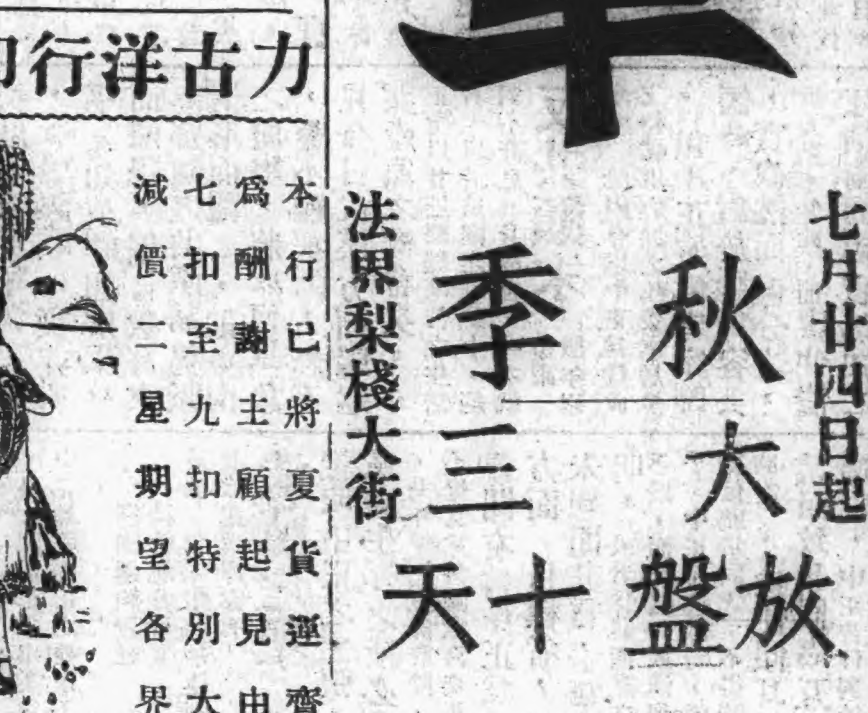 七月廿四日起
秋季
大放盤
三十天
法界梨棧大街
力古洋行
本行已將夏貨運齊
為酬謝主顧起見由
七扣至九扣特別大
減價二星期望各界